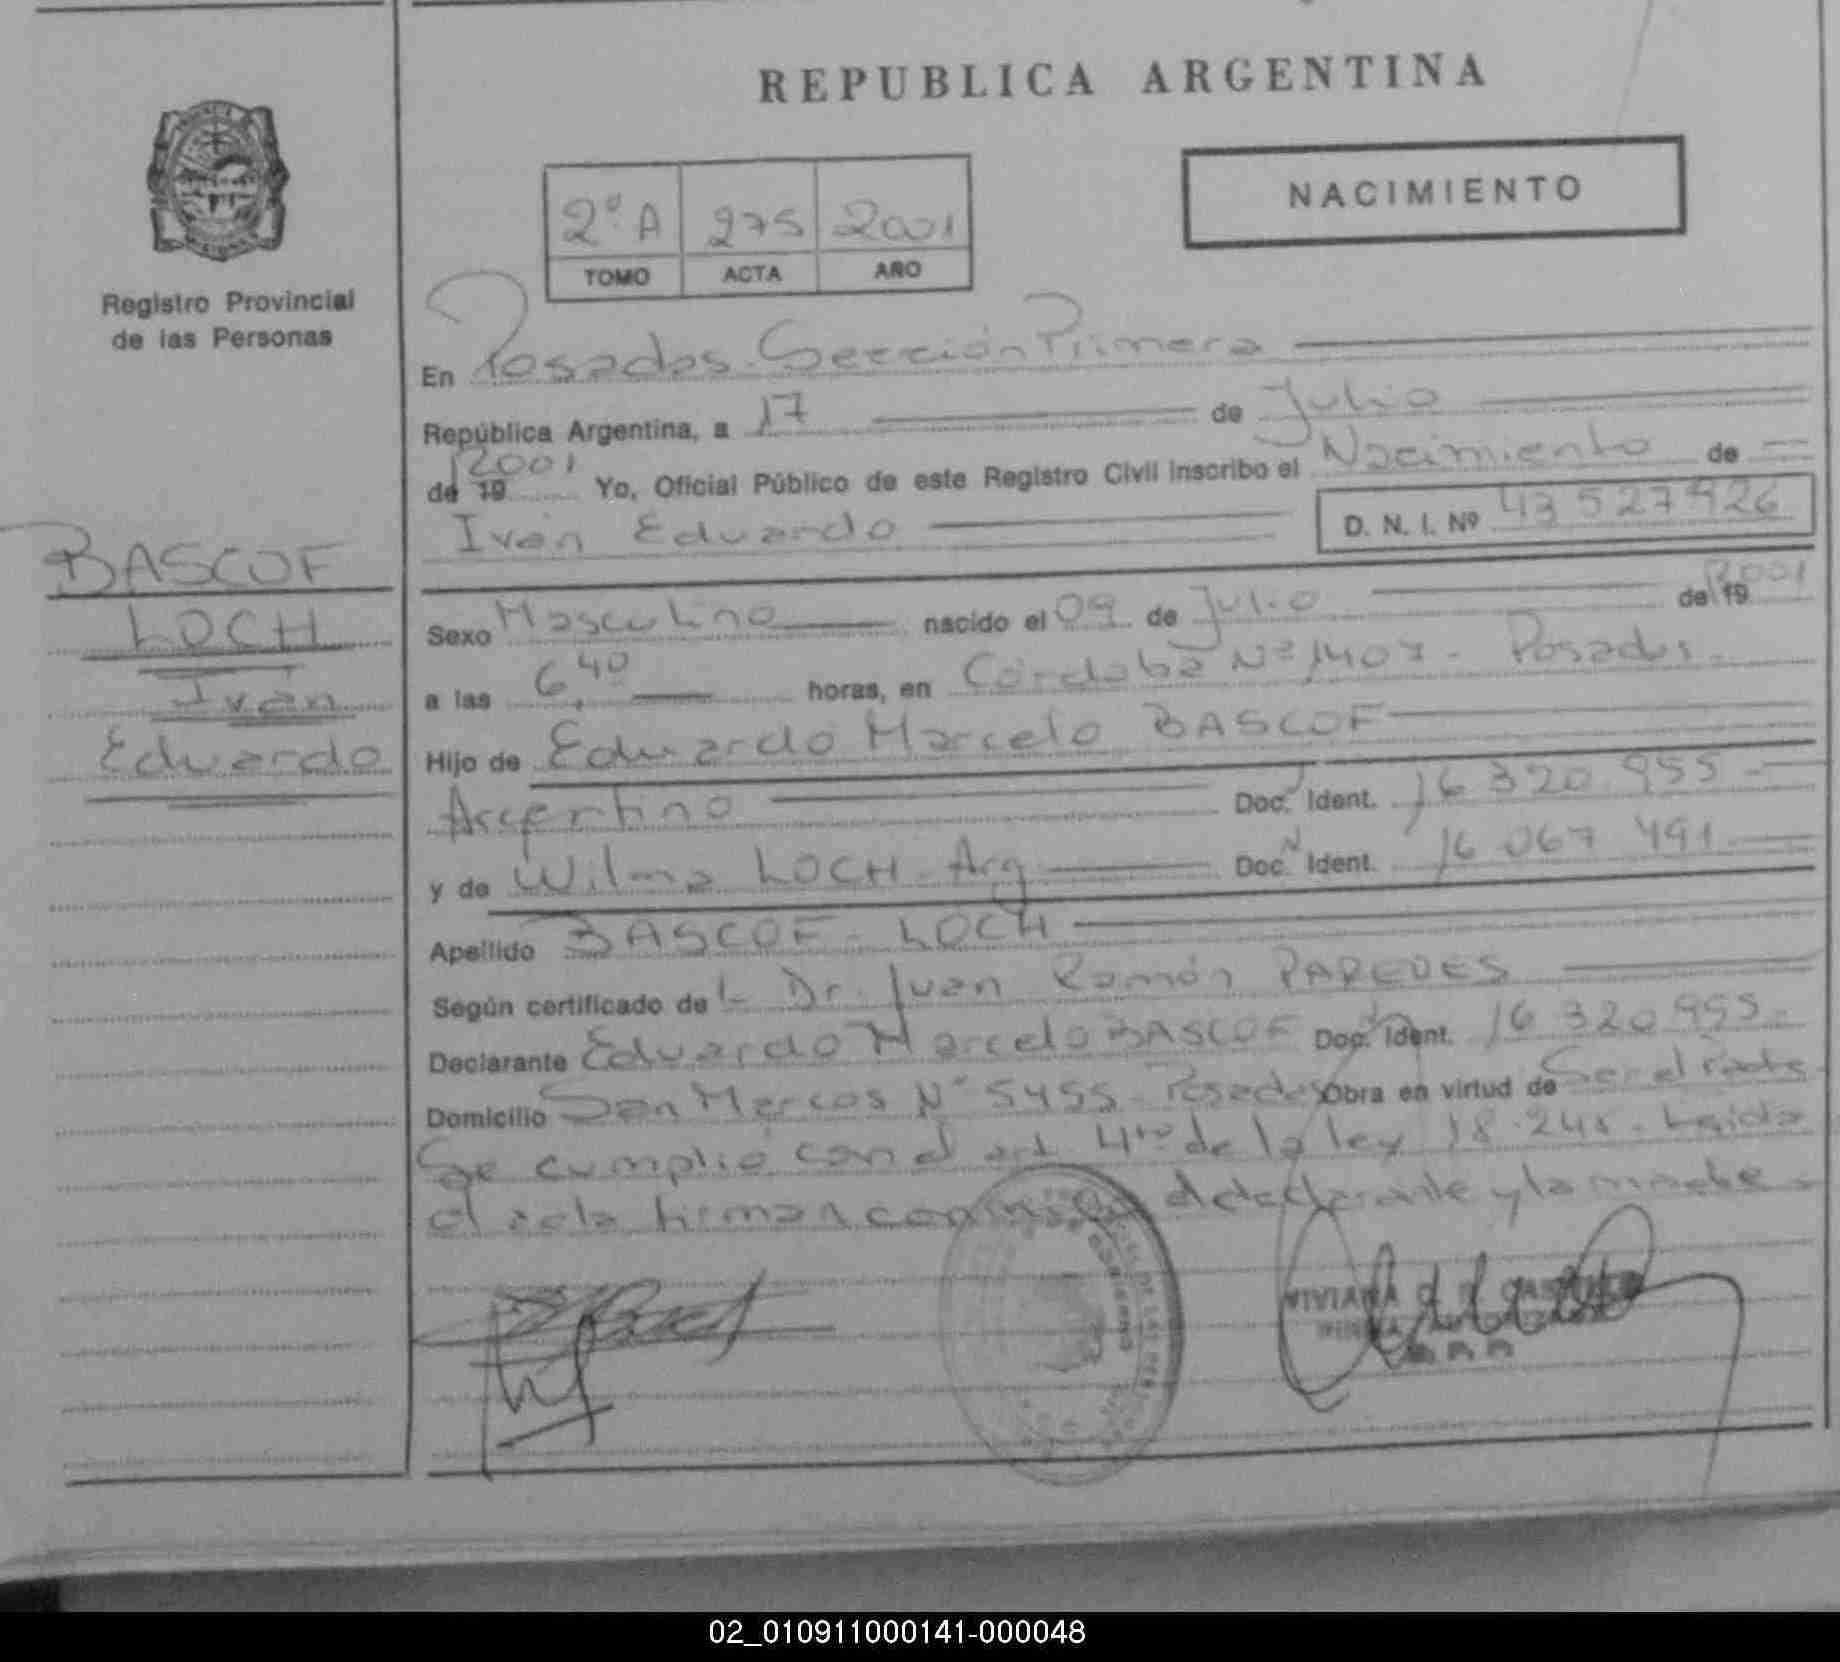 REPUBLICA ARGENTINA
NACIMIENTO
2º A 275 2001
TOMO ACTA AÑO
Registro Provincial
de las Personas
En Posadas Sección Primera
República Argentina, a 17 de Julio
de 19 2001 Yo, Oficial Público de este Registro Civil inscribo el Nacimiento de
Iván Eduardo D. N. I. Nº 43 527 926
BASCOF
LOCH
Iván
Eduardo
Sexo Masculino nacido el 09 de Julio de 19 2001
a las 6,40 horas, en Córdoba Nº 1407 - Posadas -
Hijo de Eduardo Marcelo BASCOF
Argentino Doc. Ident. 16 320 955 -
y de Wilma LOCH - Arg Doc. Ident. 16 067 491
Apellido BASCOF - LOCH
Según certificado del Dr. Juan Ramón PAREDES
Declarante Eduardo Marcelo BASCOF Doc. Ident. 16 320 955 -
Domicilio San Marcos Nº 5455 - Posadas Obra en virtud de Ser el Padre
Se cumplió con el art. 4to de la ley 18.248 - Leída
el acta firman conmigo el declarante y la madre -
VIVIANA
02_010911000141-000048